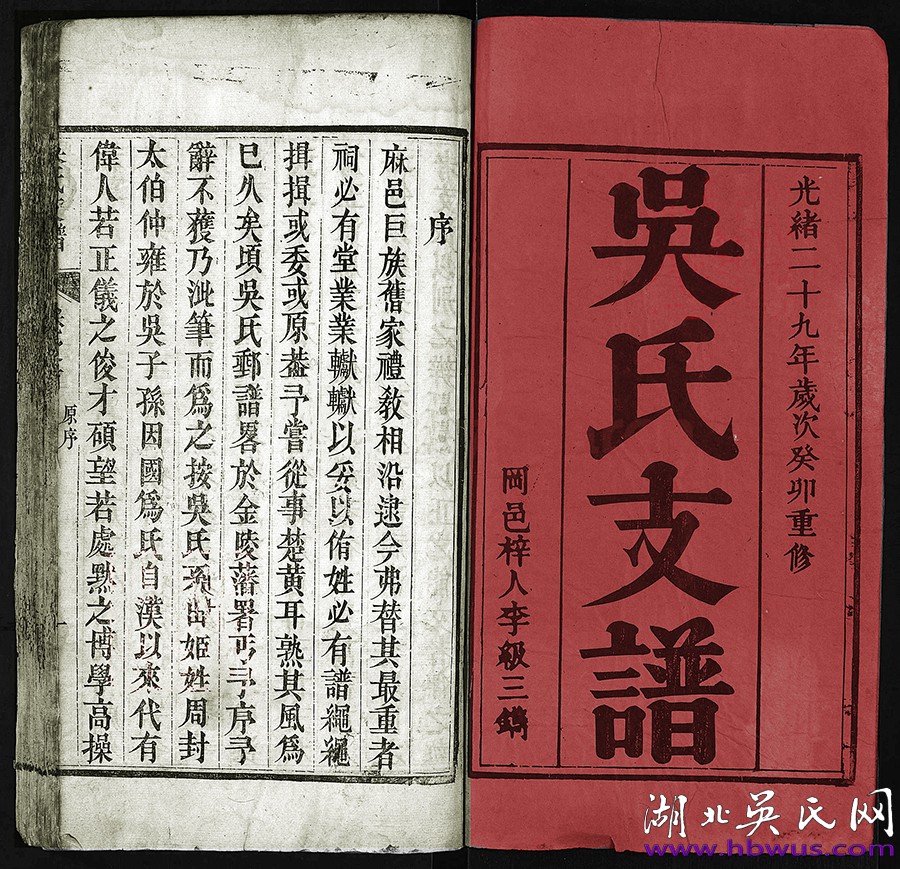 光緒二十九年歲次癸卯重修
吳氏支譜
岡邑梓人李級三鐫
序
麻邑巨族舊家禮敎相沿逮今弗替其最重者
祠必有堂業業轍轍以妥以侑姓必有譜繩繩
揖揖或委或原葢予嘗從事楚黄耳熟其風爲
巳久矣頃吳氏郵譜畧於金陵藩署丐予序予
辭不獲乃泚筆而爲之按吳氏系出姬姓周封
太伯仲雍於吳子孫因國爲氏自漢以來代有
偉人若正儀之俊才碩望若處默之博學高操
原序
一
湖北吳氏网
www.hbwus.com